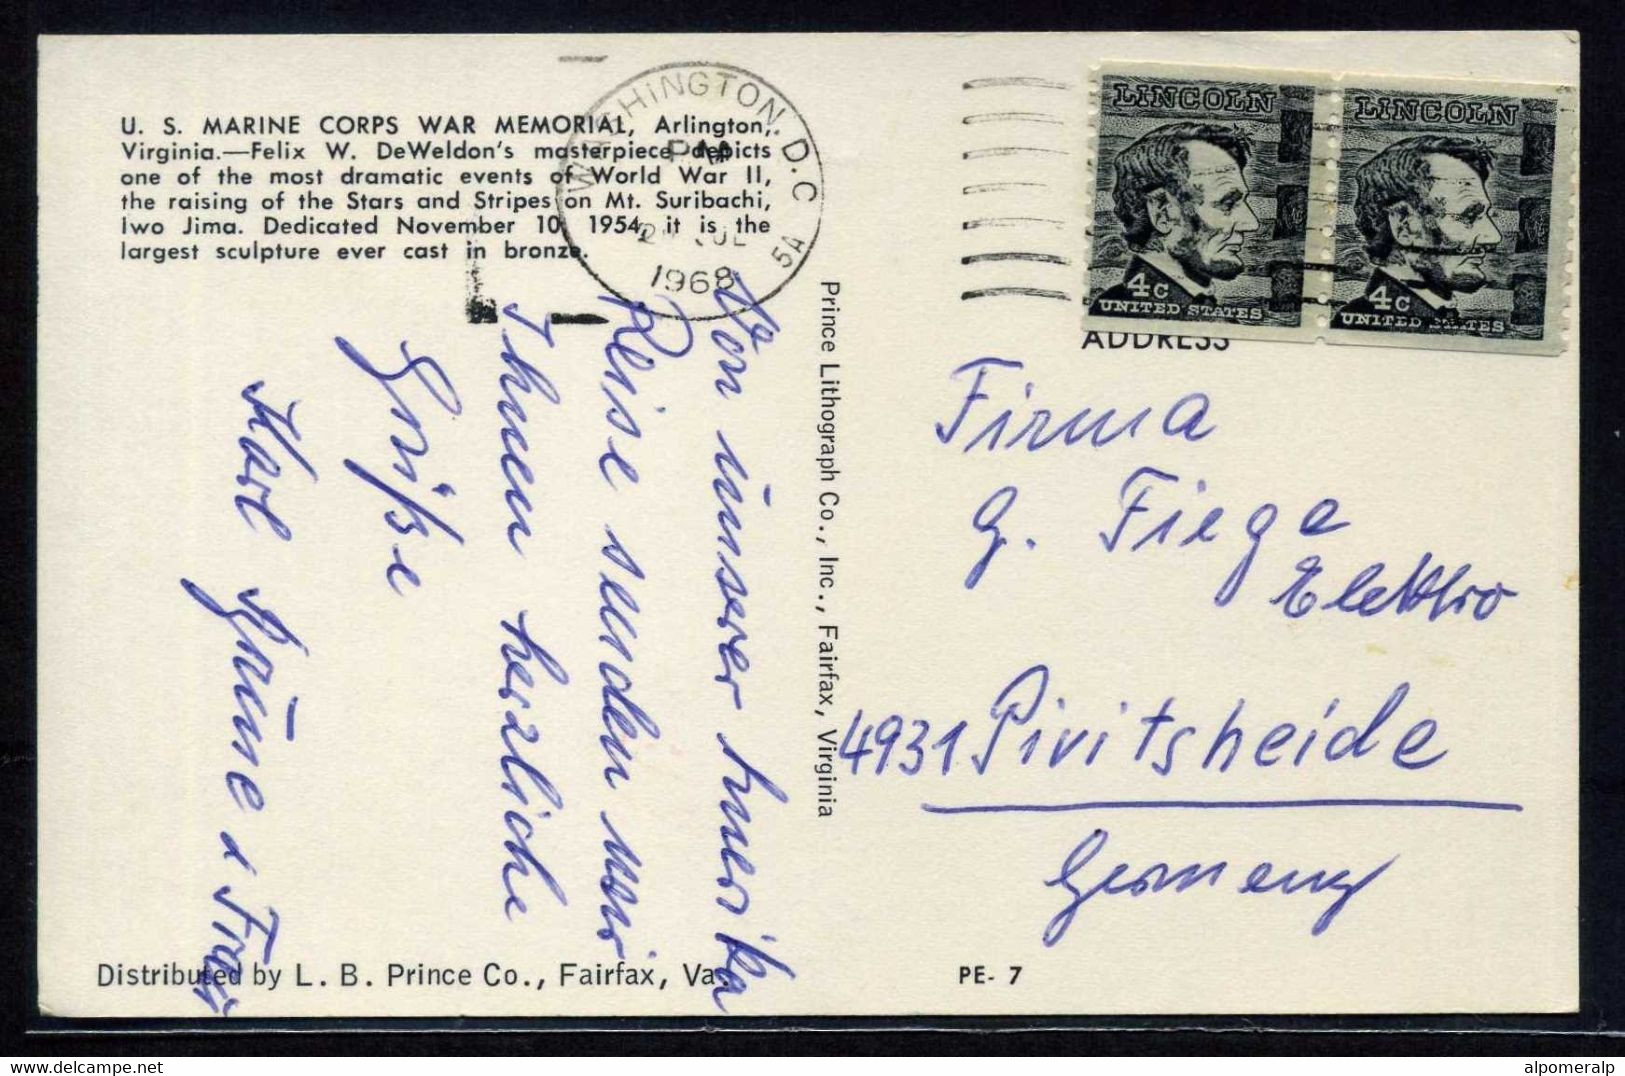 U. S. MARINE CORPS WAR MEMORIAL, Arlington,
Virginia.—Felix W. DeWeldon's masterpiece depicts
one of the most dramatic events of World War II,
the raising of the Stars and Stripes on Mt. Suribachi,
Iwo Jima. Dedicated November 10, 1954, it is the
largest sculpture ever cast in bronze.
WASHINGTON, D.C.
PM
JUL
1968
5A
LINCOLN
4c
UNITED STATES
LINCOLN
4c
UNITED STATES
ADDRESS
Von unserer Amerika
Reise senden wir
Ihnen herzliche
Grüße
Karl Grüne & Frau
Prince Lithograph Co., Inc., Fairfax, Virginia
Firma
G. Fiege
Elektro
4931 Pivitsheide
Germany
Distributed by L. B. Prince Co., Fairfax, Va.
PE- 7
© www.delcampe.net
alpomeralp